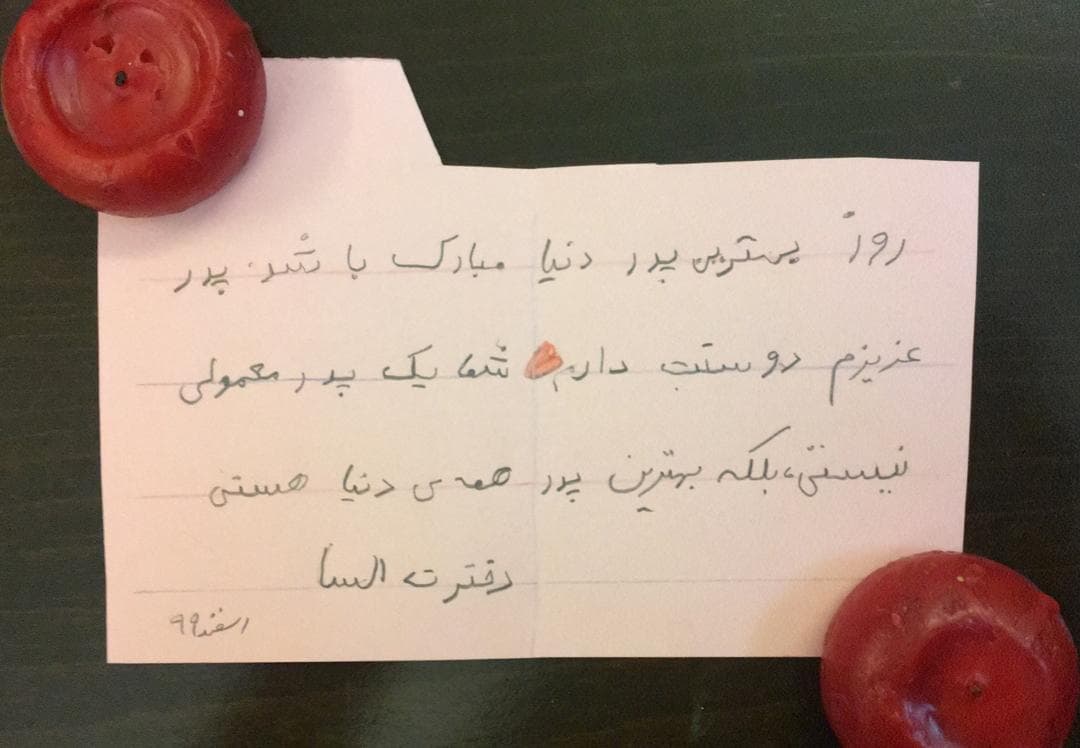 روز بهترین پدر دنیا مبارک با شد. پدر
عزیزم دوستت دارم شما یک پدر معمولی
نیستی، بلکه بهترین پدر همه‌ی دنیا هستی
دخترت السا
اسفند ۹۹